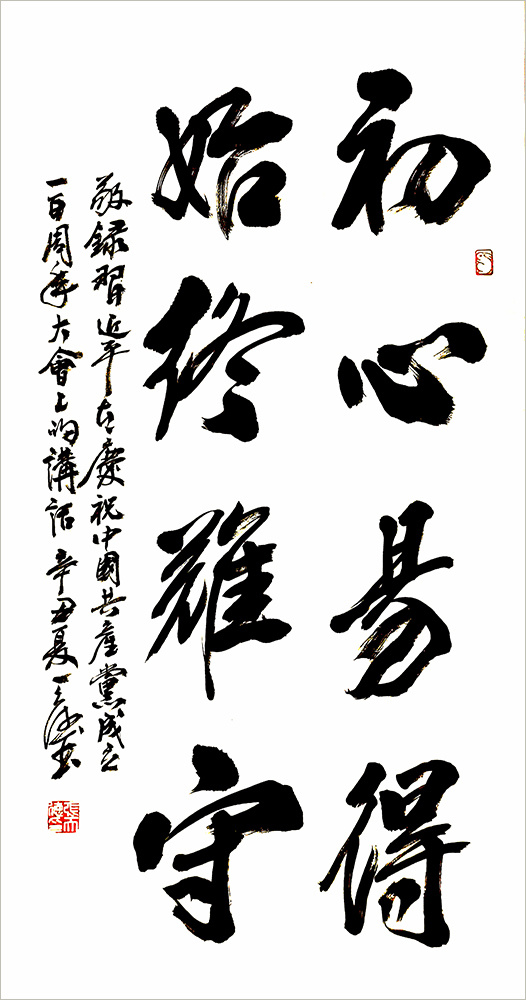 初心易得
始终難守
敬録習近平在慶祝中國共產黨成立
一百周年大會上的講話辛丑夏